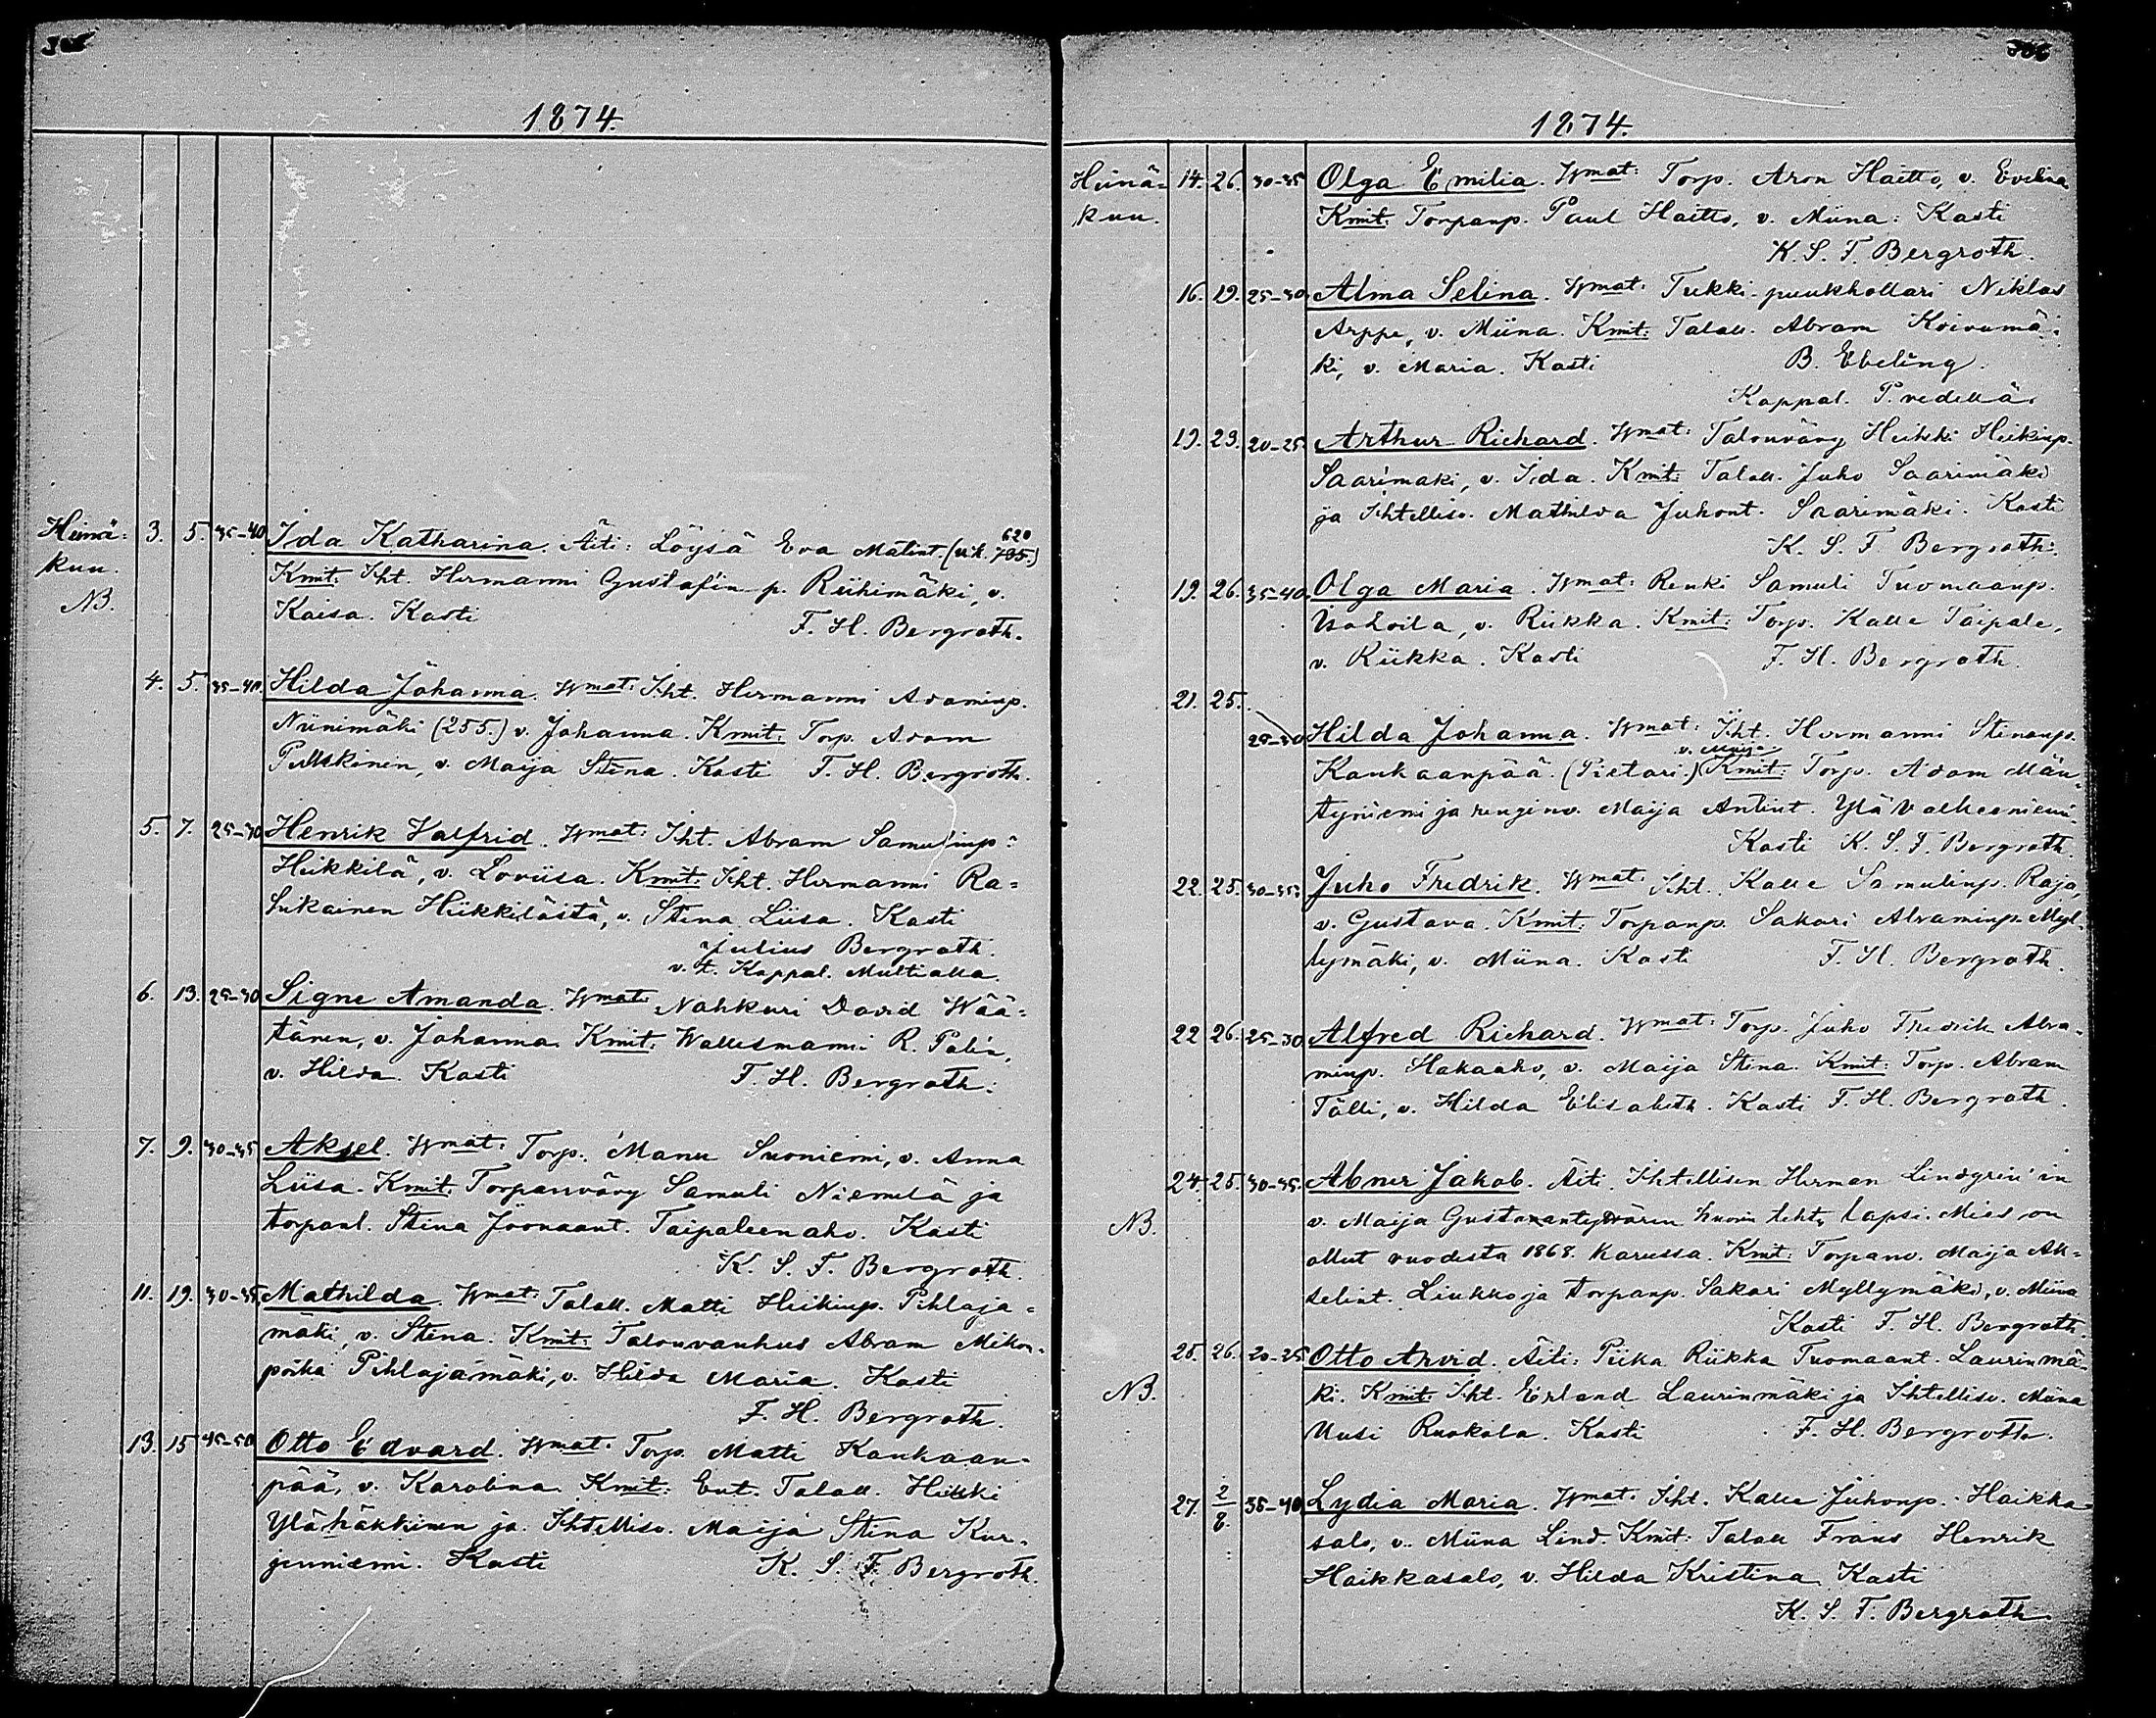 305
1874.
Heinä=
kuu.
NB.
3. 5. 35-40 Ida Katharina. Äiti: Löysä Eva Matint. (uk. 705.) 620
Kmit: Iht. Hermanni Gustafin p. Riihimäki, v.
Kaisa. Kasti F. H. Bergroth.
4. 5. 35-40. Hilda Johanna. Wmat: Iht. Hermanni Adaminp.
Niinimäki (255.) v. Johanna. Kmit: Torp. Adam
Pellskinen, v. Maija Stina. Kasti F. H. Bergroth.
5. 7. 25-30 Henrik Valfrid. Wmat: Iht. Abram Samulinp.
Heikkilä, v. Loviisa. Kmit: Iht. Hermanni Ra=
sukainen Heikkilästä, v. Stina Liisa. Kasti
Julius Bergroth.
v. t. Kappal. Multialla.
6. 13. 25-30 Signe Amanda. Wmat: Nahkuri David Wää=
tänen, v. Johanna. Kmit: Wallesmanni R. Palin,
v. Hilda. Kasti F. H. Bergroth.
7. 9. 30-35 Aksel. Wmat: Torp. Manu Suoniemi, v. Anna
Liisa. Kmit: Torpanvävy Samuli Niemelä ja
torpanl. Stina Joonaant. Taipaleenaho. Kasti
K. S. F. Bergroth.
11. 19. 30-35. Mathilda. Wmat: Talall. Matti Heikinp. Pihlaja=
mäki, v. Stina. Kmit: Talonvanhus Abram Mikon=
poika Pihlajamäki, v. Hilda Maria. Kasti
F. H. Bergroth.
13. 15 45-50 Otto Edvard. Wmat: Torp. Matti Kankaan=
pää, v. Karolina. Kmit: Ent. Talall. Heikki
Ylähäkkinen ja Ihtellisv. Maija Stina Kur=
jenniemi. Kasti K. S. F. Bergroth.
306
1874.
Heinä=
kuu.
14. 26. 30-35 Olga Emilia. Wmat: Torp. Aron Haitto, v. Evelina
Kmit: Torpanp. Paul Haitto, v. Miina. Kasti
K. S. F. Bergroth.
16. 19. 25-30. Alma Selina. Wmat: Tukki-puukhollari Niklas
Arppe, v. Miina. Kmit: Talall. Abram Koivumä=
ki, v. Maria. Kasti B. Ebeling.
Kappal. P. vedellä.
19. 29. 20-25. Arthur Richard. Wmat: Talonvävy Heikki Heikinp.
Saarimaki, v. Ida. Kmit: Talall. Juho Saarimäki
ja Ihtellisv. Mathilda Juhont. Saarimäki. Kasti
K. S. F. Bergroth.
19. 26. 35-40. Olga Maria. Wmat: Renki Samuli Tuomaanp.
Isohoila, v. Riikka. Kmit: Torp. Kalle Taipale,
v. Riikka. Kasti F. H. Bergroth.
21. 25.
25-30 Hilda Johanna. Wmat: Iht. Hermanni Stinanp.
v. Maija
Kankaanpää. (Pietari.) Kmit: Torp. Adam Män=
tyniemi ja renginv. Maija Antint. Ylä Valkeeniemi.
Kasti K. S. F. Bergroth.
22. 25. 30-35. Juho Fredrik. Wmat: Iht. Kalle Samulinp. Raja,
v. Gustava. Kmit: Torpanp. Sakari Abraminp. Myl=
lymäki, v. Miina. Kasti F. H. Bergroth.
22 26. 25-30 Alfred Richard. Wmat: Torp. Juho Fredrik Abra=
minp. Hakaaho, v. Maija Stina. Kmit: Torp. Abram
Tälli, v. Hilda Elisabeth. Kasti F. H. Bergroth.
24. 25. 30-35. Abner Jakob. Äiti. Ihtellisen Herman Lindgren'in
NB. v. Maija Gustavantyttären huorin tehty lapsi. Mies on
ollut vuodesta 1868. karussa. Kmit: Torpanv. Maija Ak=
selint. Liukko ja torpanp. Sakari Myllymäki, v. Miina
Kasti F. H. Bergroth.
25. 26. 20-25 Otto Arvid. Äiti: Piika Riikka Tuomaant. Laurinmä=
NB. ki. Kmit: Iht. Erland Laurinmäki ja Ihtellisv. Miina
Uusi Ruokola. Kasti F. H. Bergroth.
27. 2/8. 35-40 Lydia Maria. Wmat. Iht. Kalle Juhonp. Haikka=
salo, v. Miina Lind. Kmit: Talall Frans Henrik
Haikkasalo, v. Hilda Kristina. Kasti
K. S. F. Bergroth.